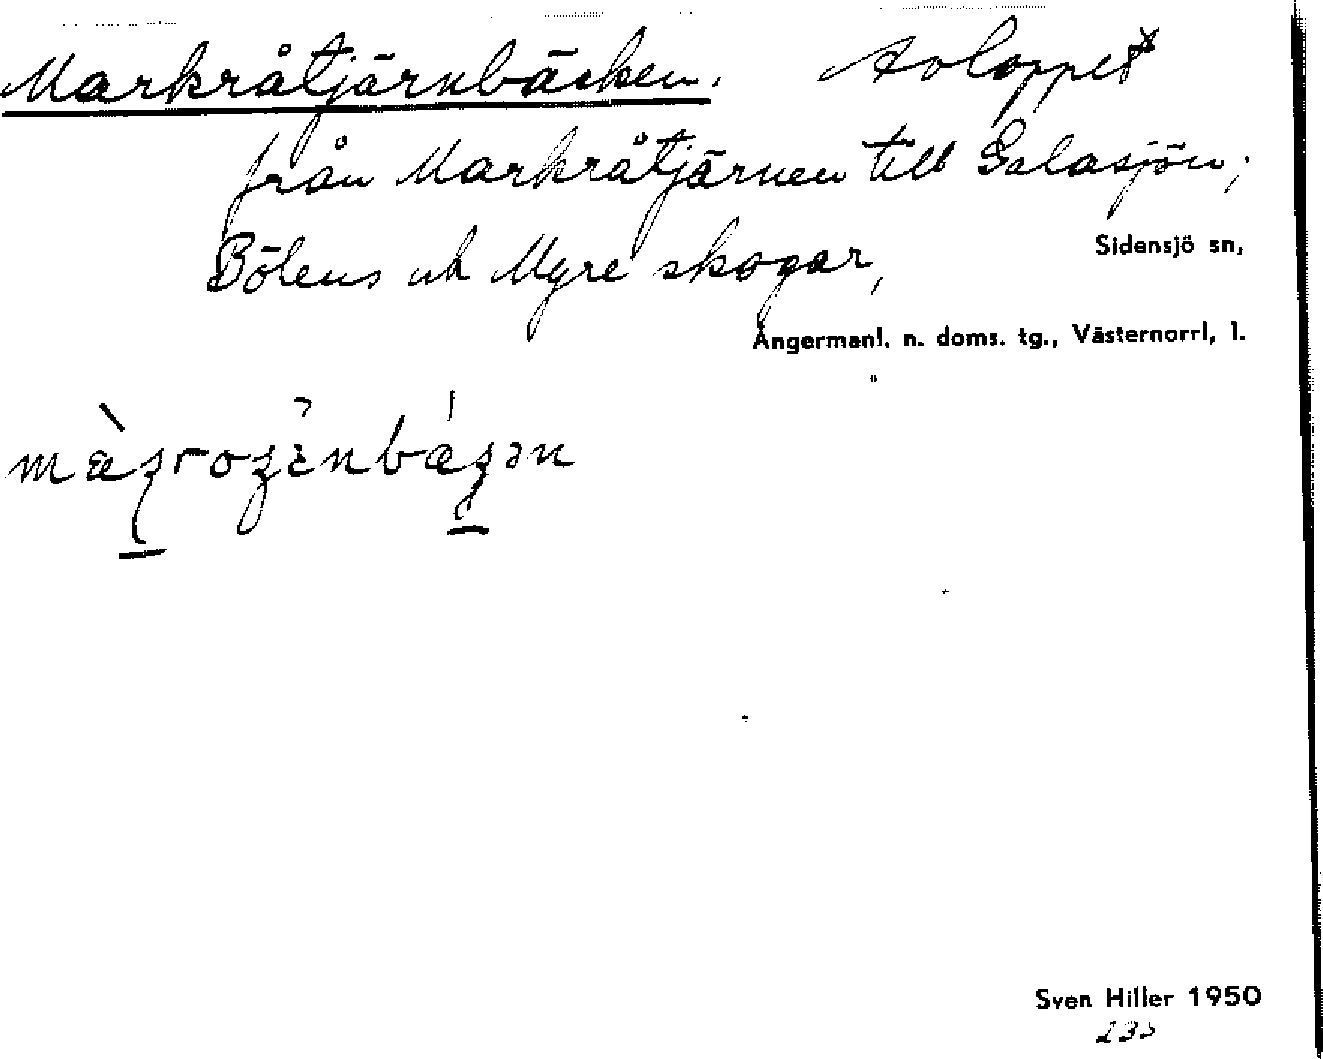 Markråtjärnbäcken. Avloppet
från Markråtjärnen till Galasjön;
Bölens och Myre skogar,
Sidensjö sn,
Ångermanl. n. doms. tg., Västernorrl, l.
Sven Hiller 1950